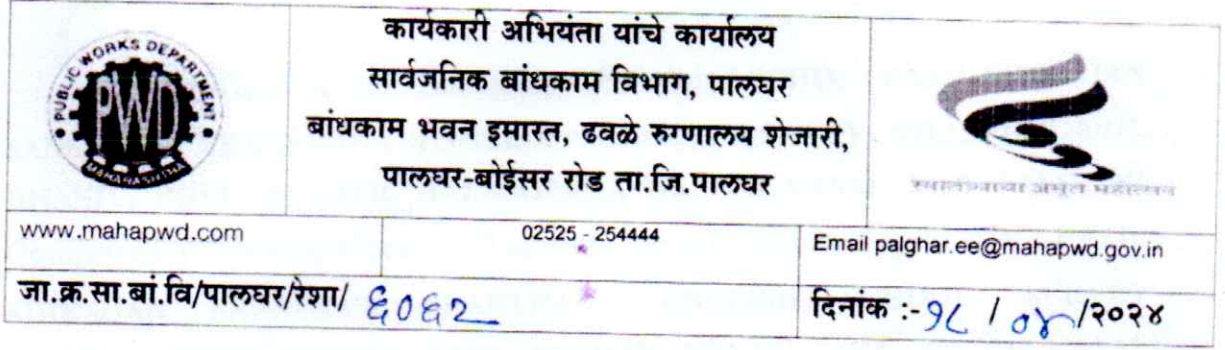 PUBLIC WORKS DEPARTMENT
PWD
MAHARASHTRA
कार्यकारी अभियंता यांचे कार्यालय
सार्वजनिक बांधकाम विभाग, पालघर
बांधकाम भवन इमारत, ढवळे रुग्णालय शेजारी,
पालघर-बोईसर रोड ता.जि.पालघर
अमृत महोत्सव
www.mahapwd.com
02525 - 254444
Email palghar.ee@mahapwd.gov.in
जा.क्र.सा.बां.वि/पालघर/रेशा/ ६०६२
दिनांक :- १८ / ०४ /२०२४